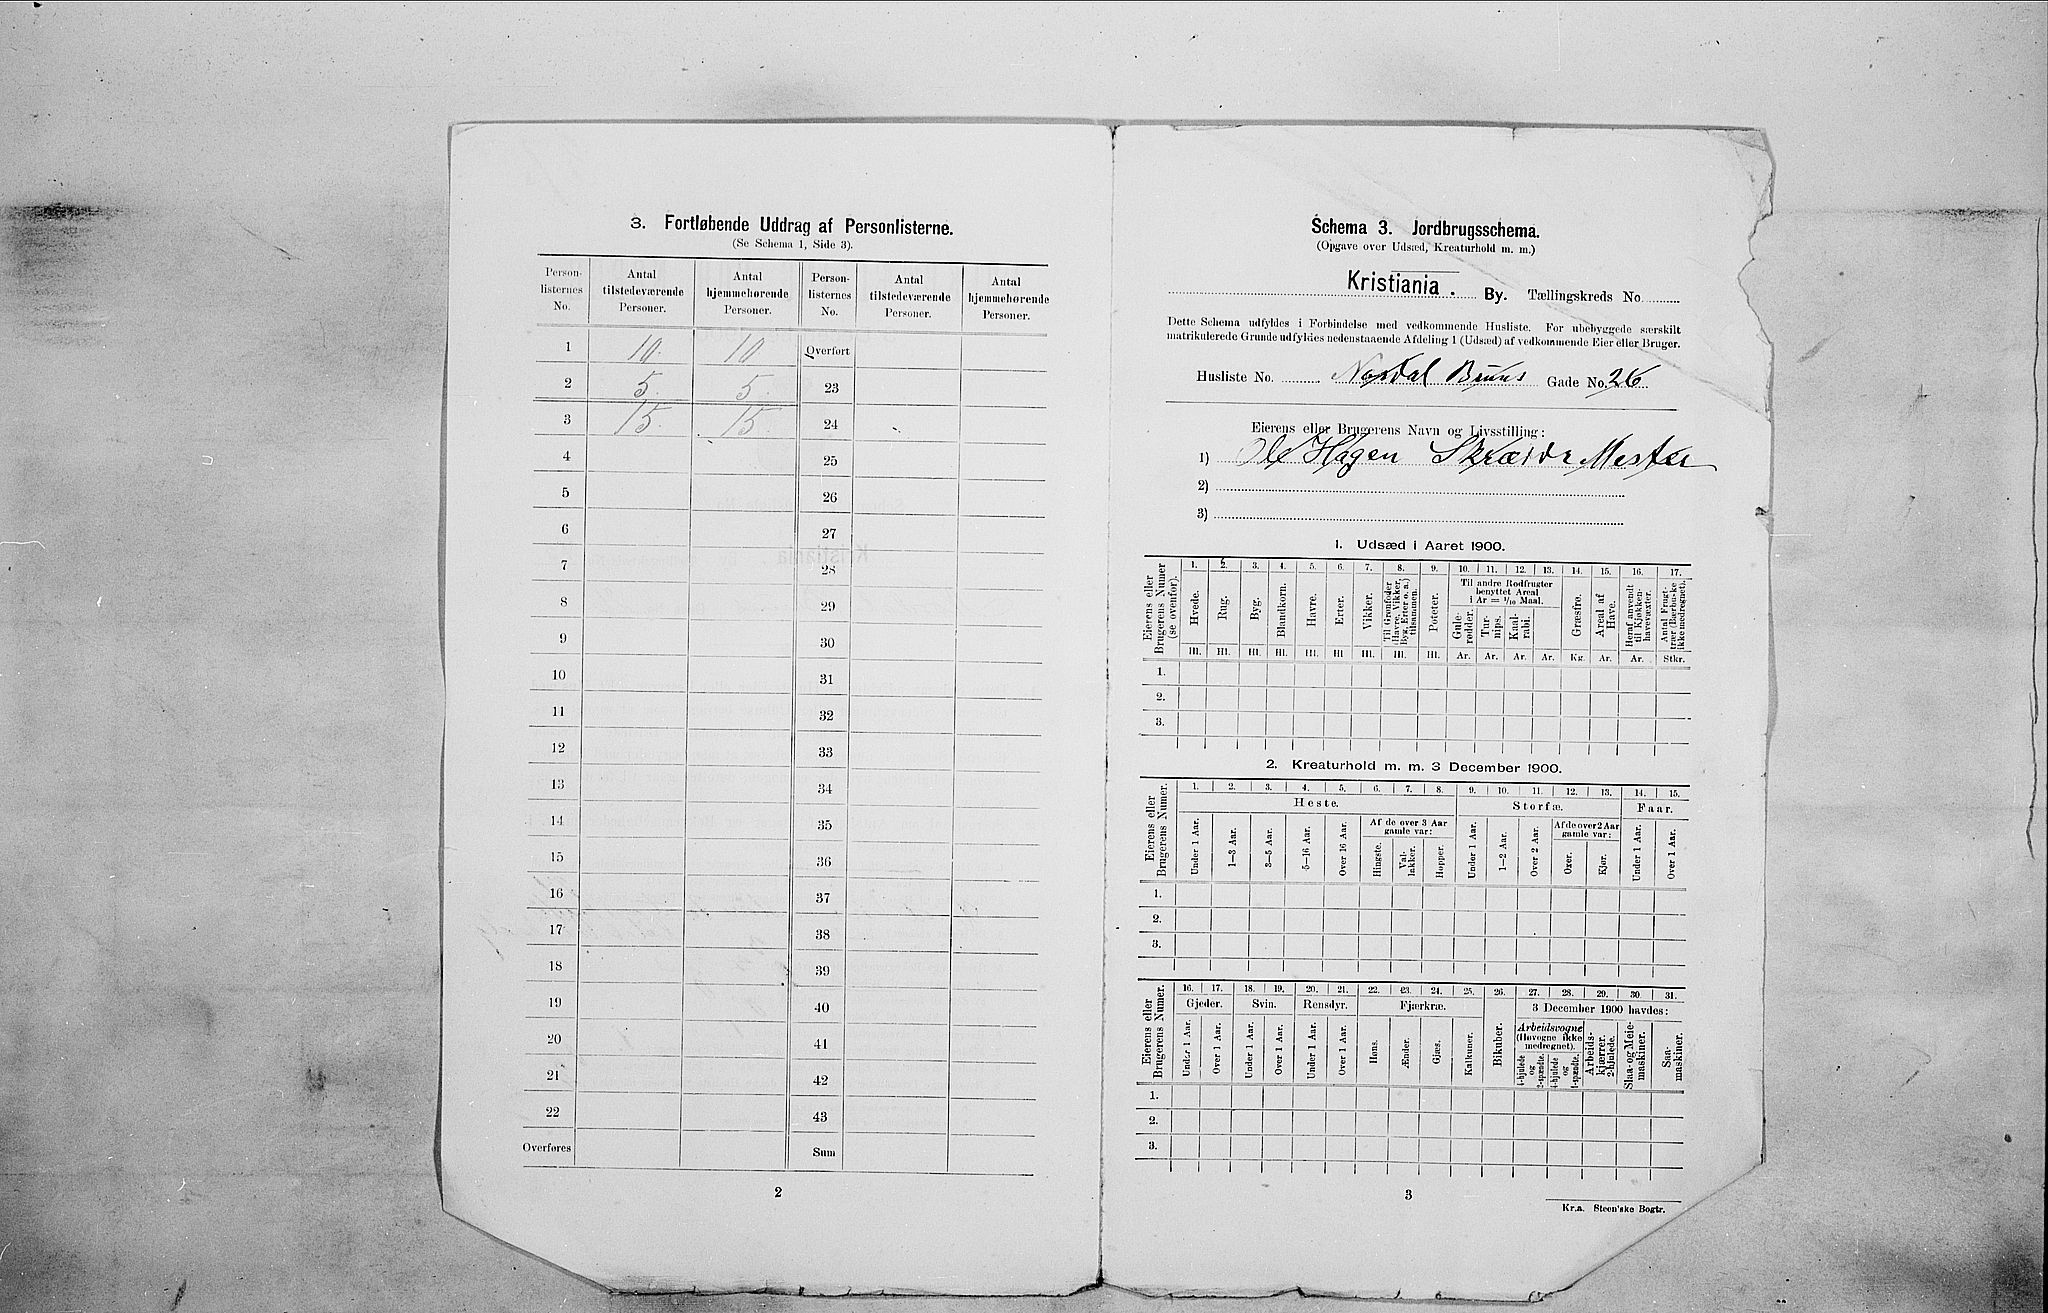 3. Fortløbende Uddrag af Personlisterne.
(Se Schema 1, Side 3).
Person-listernes No. Antal tilstedeværende Personer. Antal hjemmehørende Personer. Person-listernes No. Antal tilstedeværende Personer. Antal hjemmehørende Personer.
1 10. 10 Overført
2 5. 5. 23
3 15. 15. 24
4 25
5 26
6 27
7 28
8 29
9 30
10 31
11 32
12 33
13 34
14 35
15 36
16 37
17 38
18 39
19 40
20 41
21 42
22 43
Overføres Sum
2
Schema 3. Jordbrugsschema.
(Opgave over Udsæd, Kreaturhold m. m.)
Kristiania. By. Tællingskreds No.
Dette Schema udfyldes i Forbindelse med vedkommende Husliste. For ubebyggede særskilt
matrikulerede Grunde udfyldes nedenstaaende Afdeling 1 (Udsæd) af vedkommende Eier eller Bruger.
Husliste No. Nordal Bruns Gade No. 26
Eierens eller Brugerens Navn og Livsstilling:
1) Ole Hagen Skrædr Mester
2)
3)
1. Udsæd i Aaret 1900.
Eierens eller Brugerens Numer (se ovenfor).
1. 2. 3. 4. 5. 6. 7. 8. 9. 10. 11. 12. 13. 14. 15. 16. 17.
Hvede. Rug. Byg. Blandkorn. Havre. Erter. Vikker. Til Grønfoder (Havre, Vikker, Byg, Erter o. a.) tilsammen. Poteter. Til andre Rodfrugter benyttet Areal i Ar = 1/10 Maal. Gule-rødder. Tur-nips. Kaal-rabi. Græsfrø. Areal af Have. Heraf anvendt til Kjøkken-havevæxter. Antal Frugt-trær (Bærbuske ikke medregnet).
Hl. Hl. Hl. Hl. Hl. Hl Hl. Hl. Hl. Ar. Ar. Ar. Ar. Kg. Ar. Ar. Stkr.
1.
2.
3.
2. Kreaturhold m. m. 3 December 1900.
Eierens eller Brugerens Numer.
1. 2. 3. 4. 5. 6. 7. 8. 9. 10. 11. 12. 13. 14. 15.
Heste. Storfæ. Faar.
Under 1 Aar. 1–3 Aar. 3–5 Aar. 5–16 Aar. Over 16 Aar. Af de over 3 Aar gamle var: Hingste. Val-lakker. Hopper. Under 1 Aar. 1–2 Aar. Over 2 Aar. Af de over 2 Aar gamle var: Oxer. Kjør. Under 1 Aar. Over 1 Aar.
1.
2.
3.
Eierens eller Brugerens Numer.
16. 17. 18. 19. 20. 21. 22. 23. 24. 25. 26. 27. 28. 29. 30. 31.
Gjeder. Svin. Rensdyr. Fjærkræ. Bikuber. 3 December 1900 havdes:
Under 1 Aar. Over 1 Aar. Under 1 Aar. Over 1 Aar. Under 1 Aar. Over 1 Aar. Høns. Ænder. Gjæs. Kalkuner. Arbeidsvogne (Høvogne ikke medregnet). 4-hjulede og 2-spændte. 4-hjulede og 1-spændte. Arbeids-kjærrer. 2-hjulede. Slaa- og Meie-maskiner. Saa-maskiner.
1.
2.
3.
3
Kr.a. Steen'ske Bogtr.